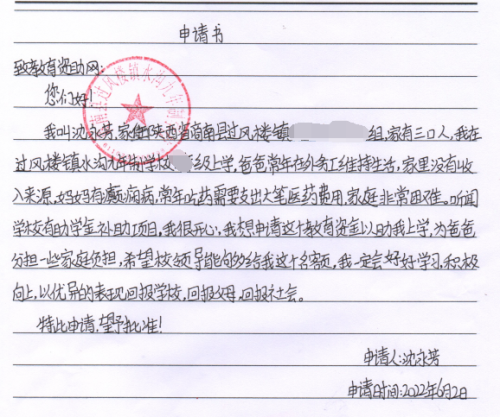 申请书
致教育资助网:
您们好!
我叫沈永芳,家住陕西省商南县过风楼镇 组,家有三口人,我在
过风楼镇水沟九年制学校 级上学,爸爸常年在外务工维持生活,家里没有收
入来源,妈妈有癫痫病,常年吃药需要支出大笔医药费用,家庭非常困难。听闻
学校有助学金补助项目,我很开心,我想申请这个教育资金以助我上学,为爸爸
分担一些家庭负担,希望校领导能够给我这个名额,我一定会好好学习,积极
向上,以优异的表现回报学校,回报父母,回报社会。
特此申请,望予批准!
申请人:沈永芳
申请时间:2022年6月2日
商南县过风楼镇水沟九年制